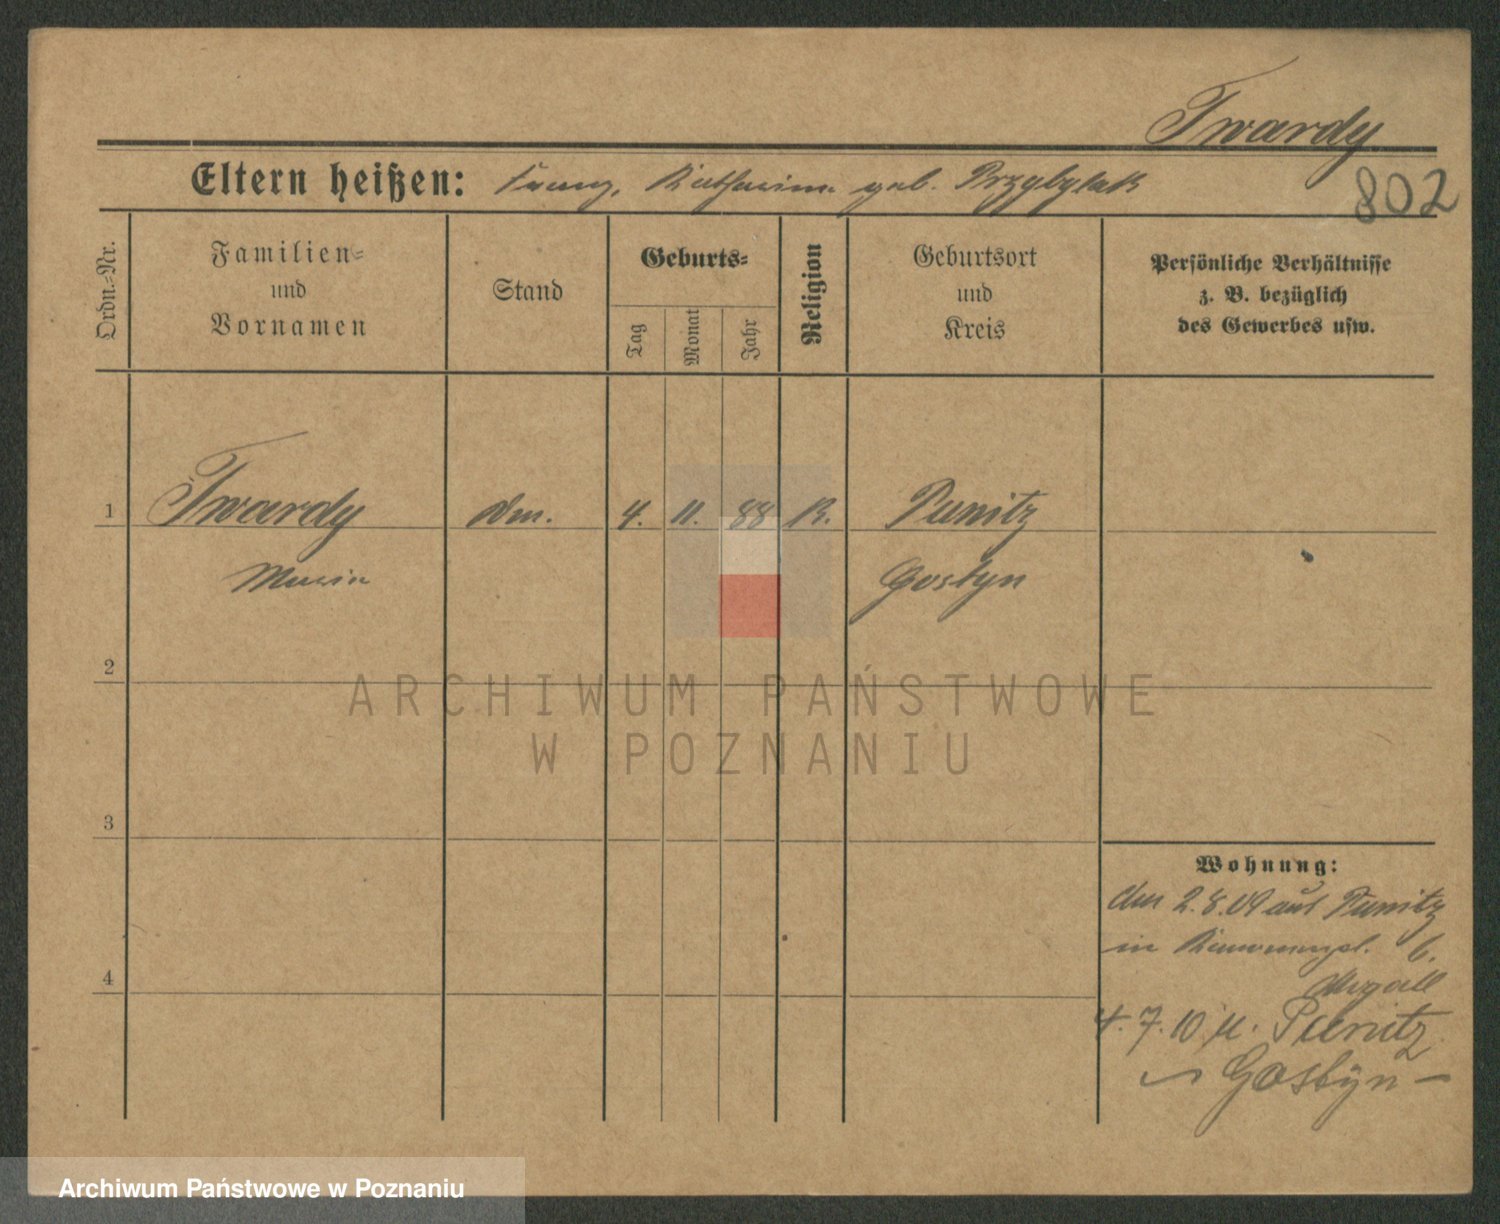 Twardy
802
Eltern heißen: Franz, Katharina geb. Przybylak
Ordn.=Nr.
Familien=
und
Vornamen
Stand
Geburts=
Tag
Monat
Jahr
Religion
Geburtsort
und
Kreis
Persönliche Verhältnisse
z. B. bezüglich
des Gewerbes usw.
1 Twardy 4. 11. 88 K. Punitz
Maria Gostyn
2
3
4
Wohnung:
den 2.8.09 aus Punitz
in 6.
4. 7. 10 n. Punitz
Gostyn
ARCHIWUM PAŃSTWOWE
W POZNANIU
Archiwum Państwowe w Poznaniu